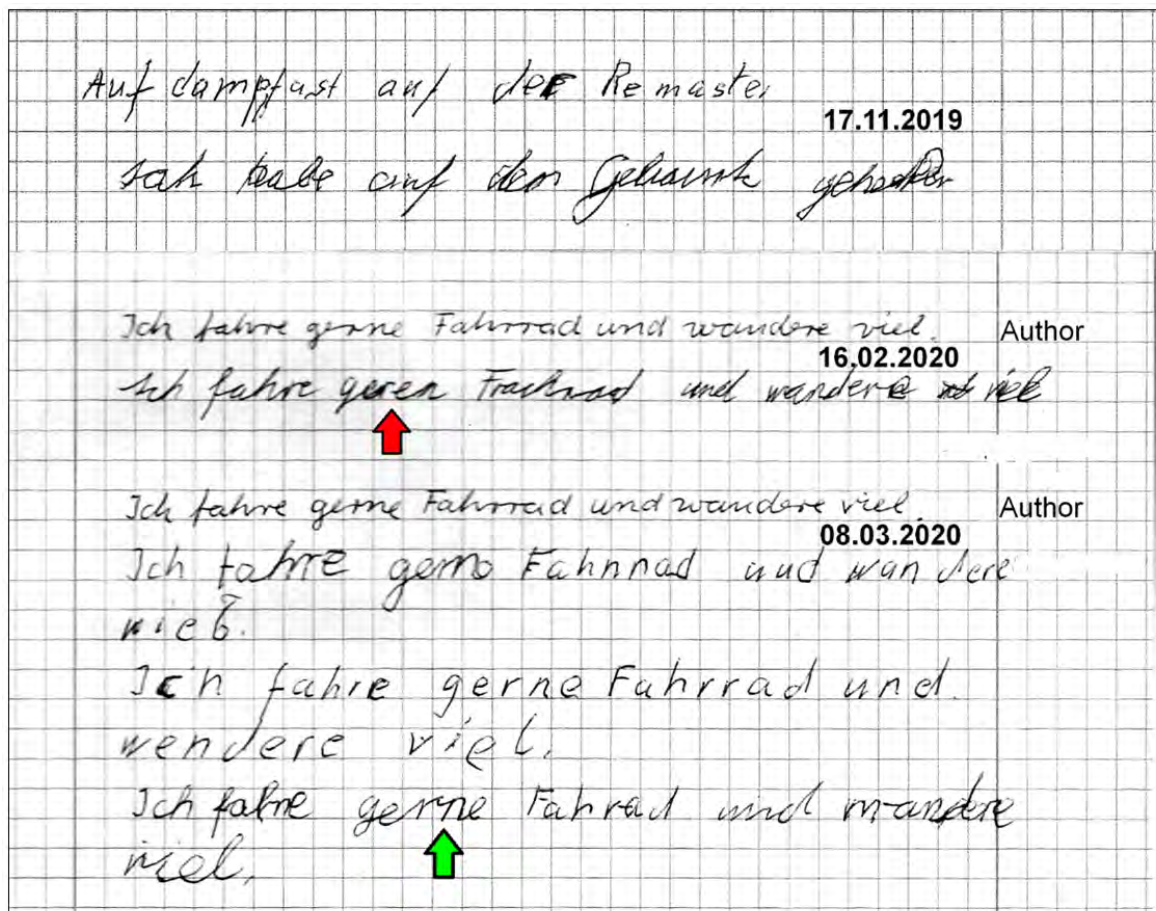 Auf dampffast auf der Remaster
17.11.2019
habe auf dem
Ich fahre gerne Fahrrad und wandere viel. Author
16.02.2020
Ich fahre geren und wandere viel
Ich fahre gerne Fahrrad und wandere viel. Author
08.03.2020
Ich fahre gerno Fahnnad und wandere
vieß.
Ich fahre gerne Fahrrad und
wendere viel.
Ich fahre gerne Fahrad und mandere
viel.